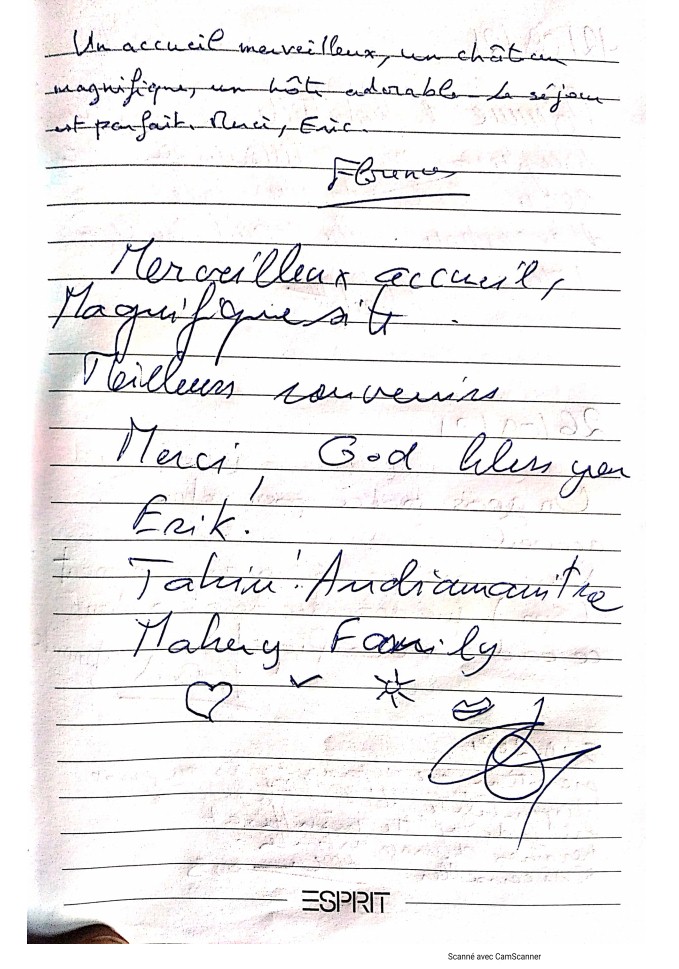 Un accueil merveilleux, un château
magnifique, un hôte adorable. Le séjour
est parfait. Merci, Eric.
Florence
Merveilleux accueil,
Magnifique site.
Meilleurs souvenirs
Merci! God bless you
Erik!
Tahin'Andriamanitra
Mahery Family
ESPRIT
Scanné avec CamScanner